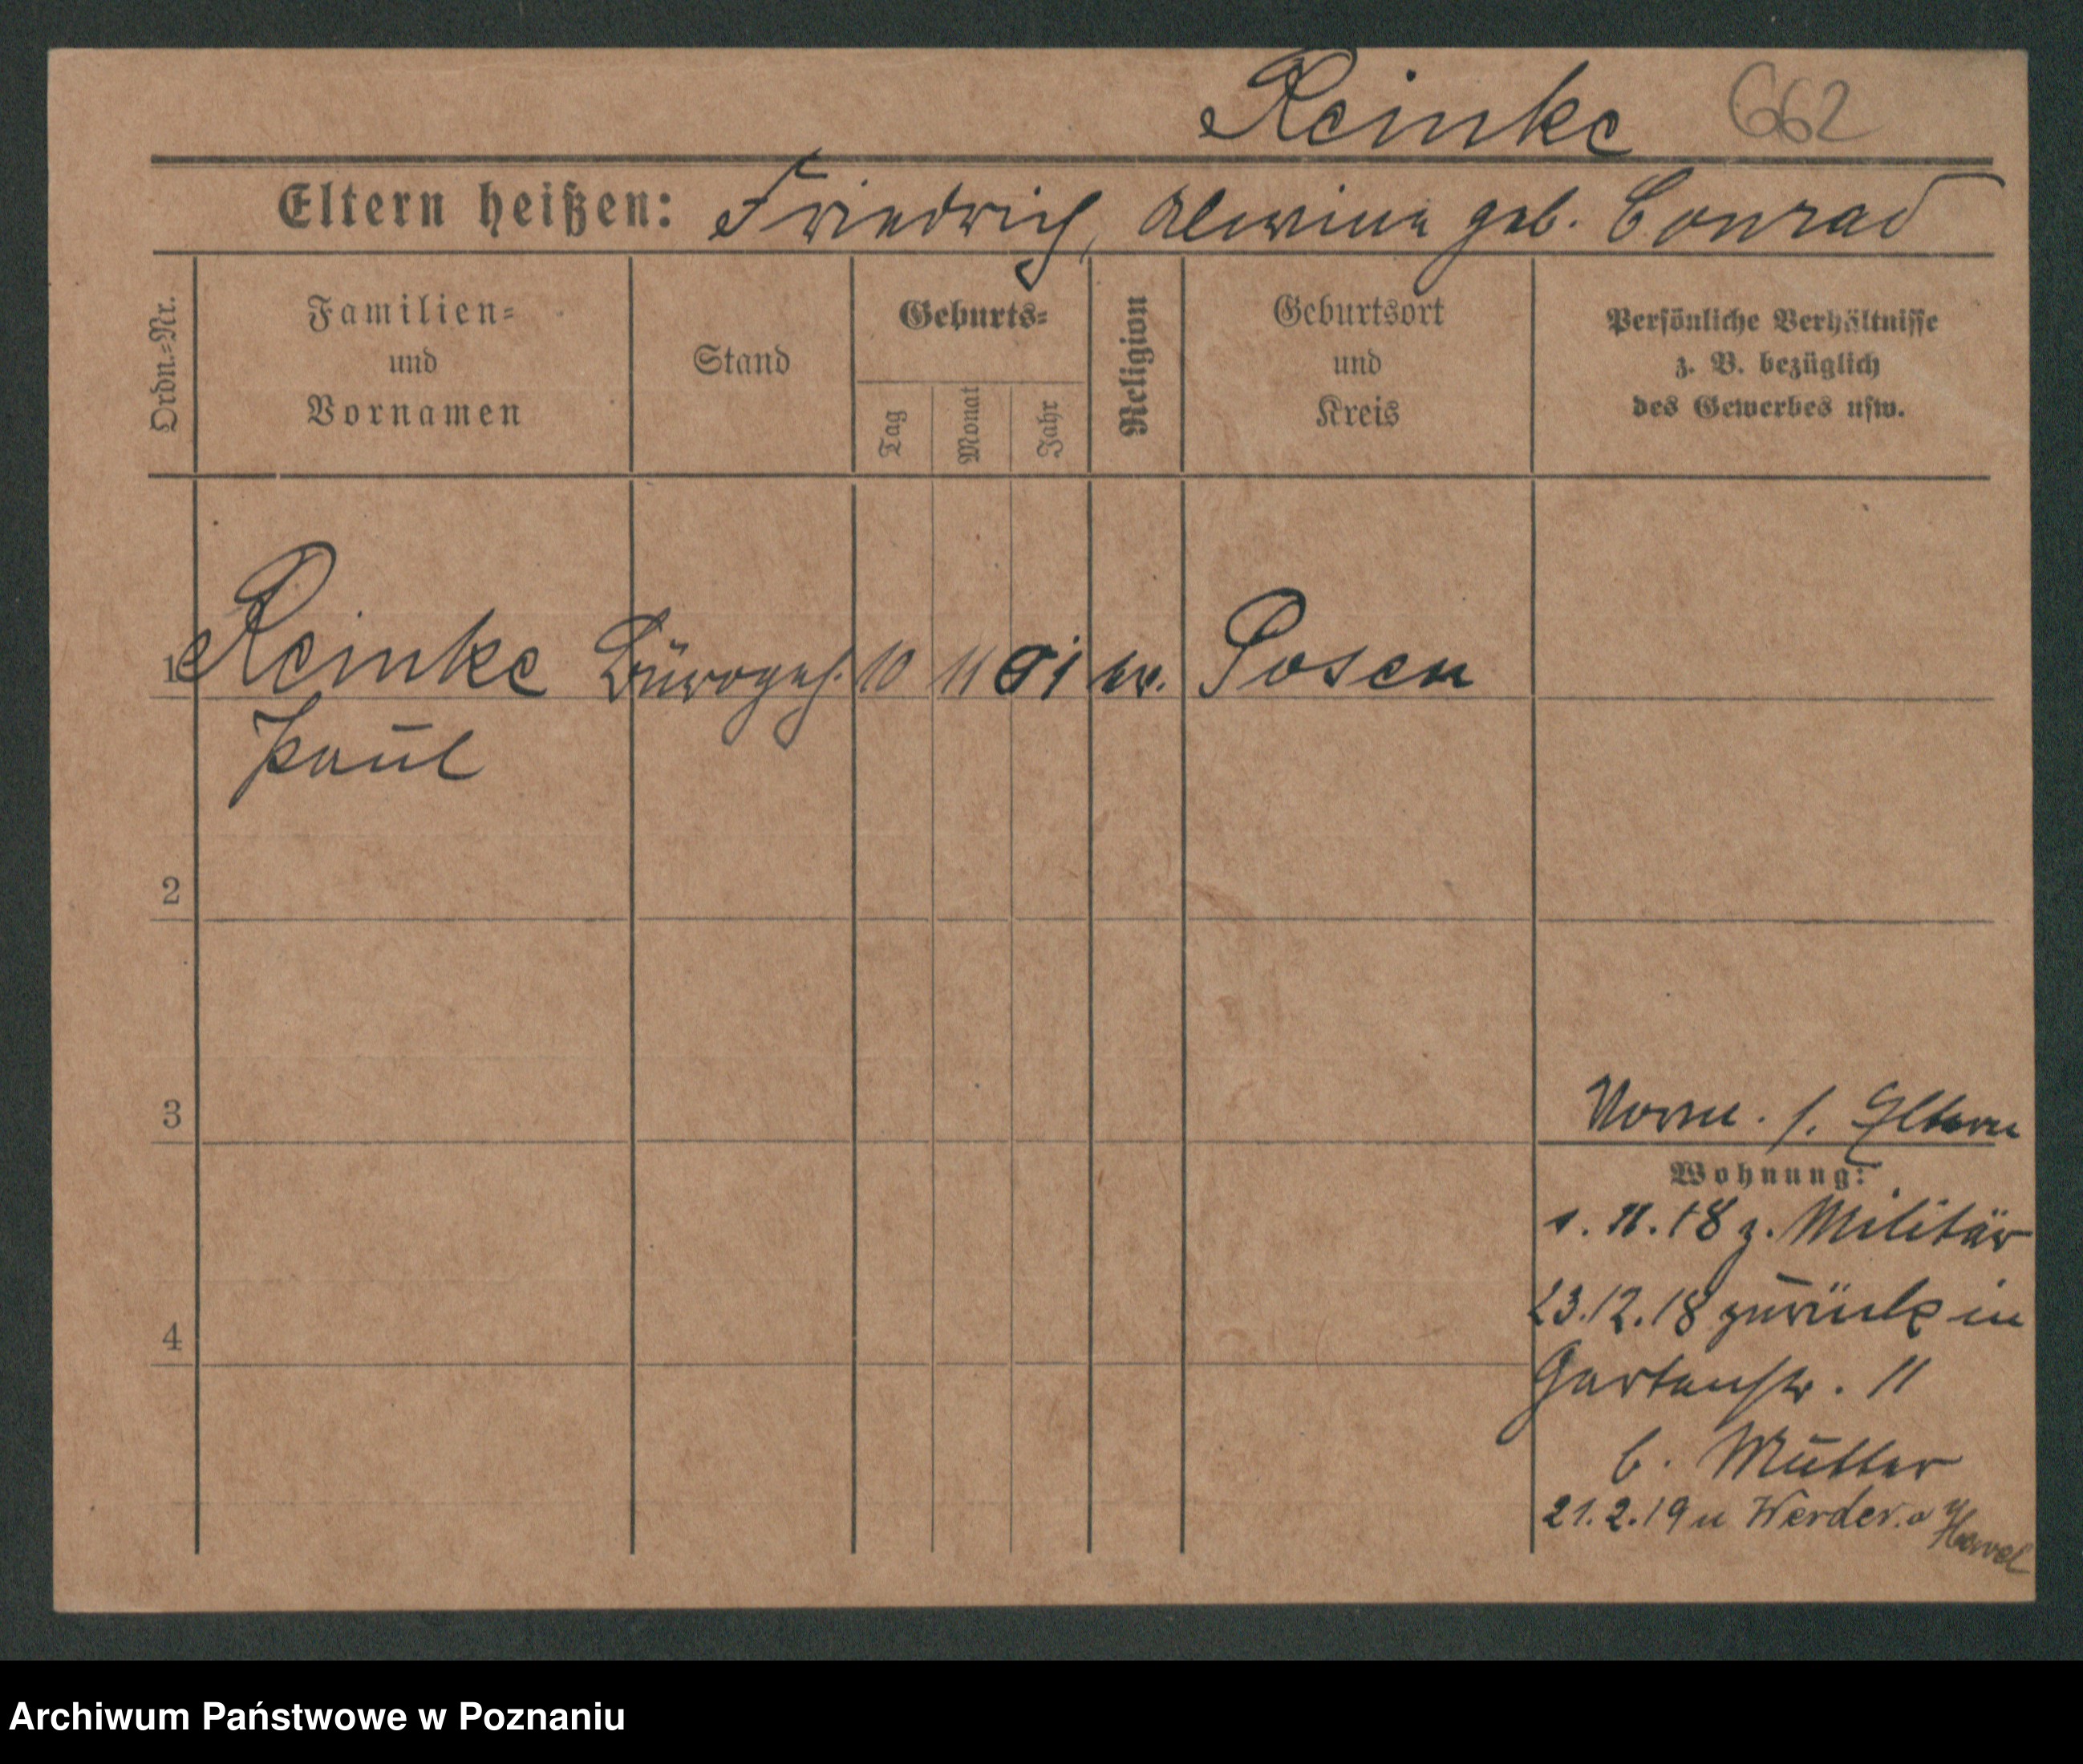 Reinke 662
Eltern heißen: Friedrich, Alwine geb. Conrad
Ordn.-Nr.
Familien-
und
Vornamen
Stand
Geburts-
Tag
Monat
Jahr
Religion
Geburtsort
und
Kreis
Persönliche Verhältnisse
z. B. bezüglich
des Gewerbes usw.
1 Reinke Bürogeh. 10 11 01 ev. Posen
Paul
2
3
4
Vorm. s. Eltern
Wohnung:
1.11.18 z. Militär
23.12.18 zurück in
Gartenstr. 11
b. Mutter
21.2.19 n Werder a
Havel
Archiwum Państwowe w Poznaniu